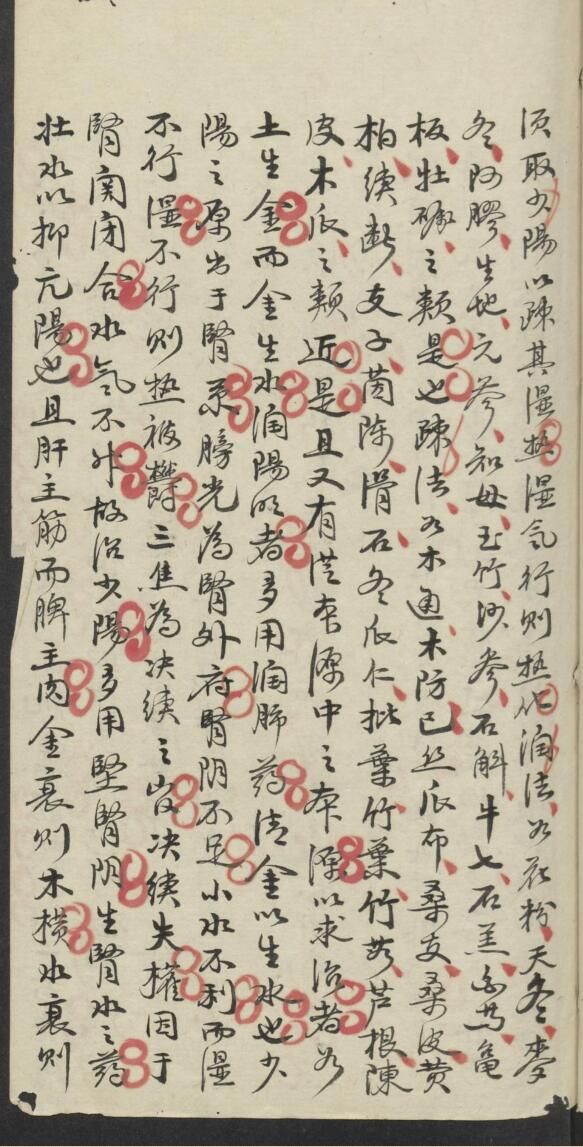 須取少陽以疎其濕热濕氣行則热化润法如花粉天冬麥
冬阿膠生地元參知母玉竹沙參石斛牛七石羔龟
板牡礪之類是也疎法如木通木防已丝瓜布桑支桑皮黄
柏續断支子茵陈滑石冬瓜仁枇葉竹葉竹茹芦根陳
皮木瓜之類近是且又有從本源中之本源以求治者如
土生金而金生水润陽明者多用润肺药清金以生水也少
陽之原出于腎系膀光為腎外府腎阴不足小水不利而濕
不行濕不行則热被欝三焦為决續之官决續失權因于
腎関闭合水氣不升故治少陽多用堅腎阴生腎水之药
壮水以抑亢陽也且肝主筋而脾主肉金衰则木横水衰则